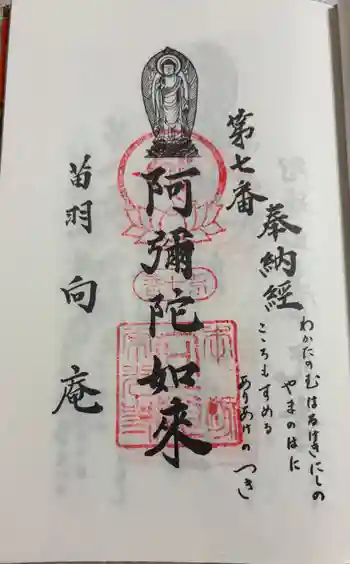 奉納經
わかたのむはるけきにしの
やまのはに
こころもすめる
ありあけのつき
第七番
阿彌陀如來
苗羽 向庵